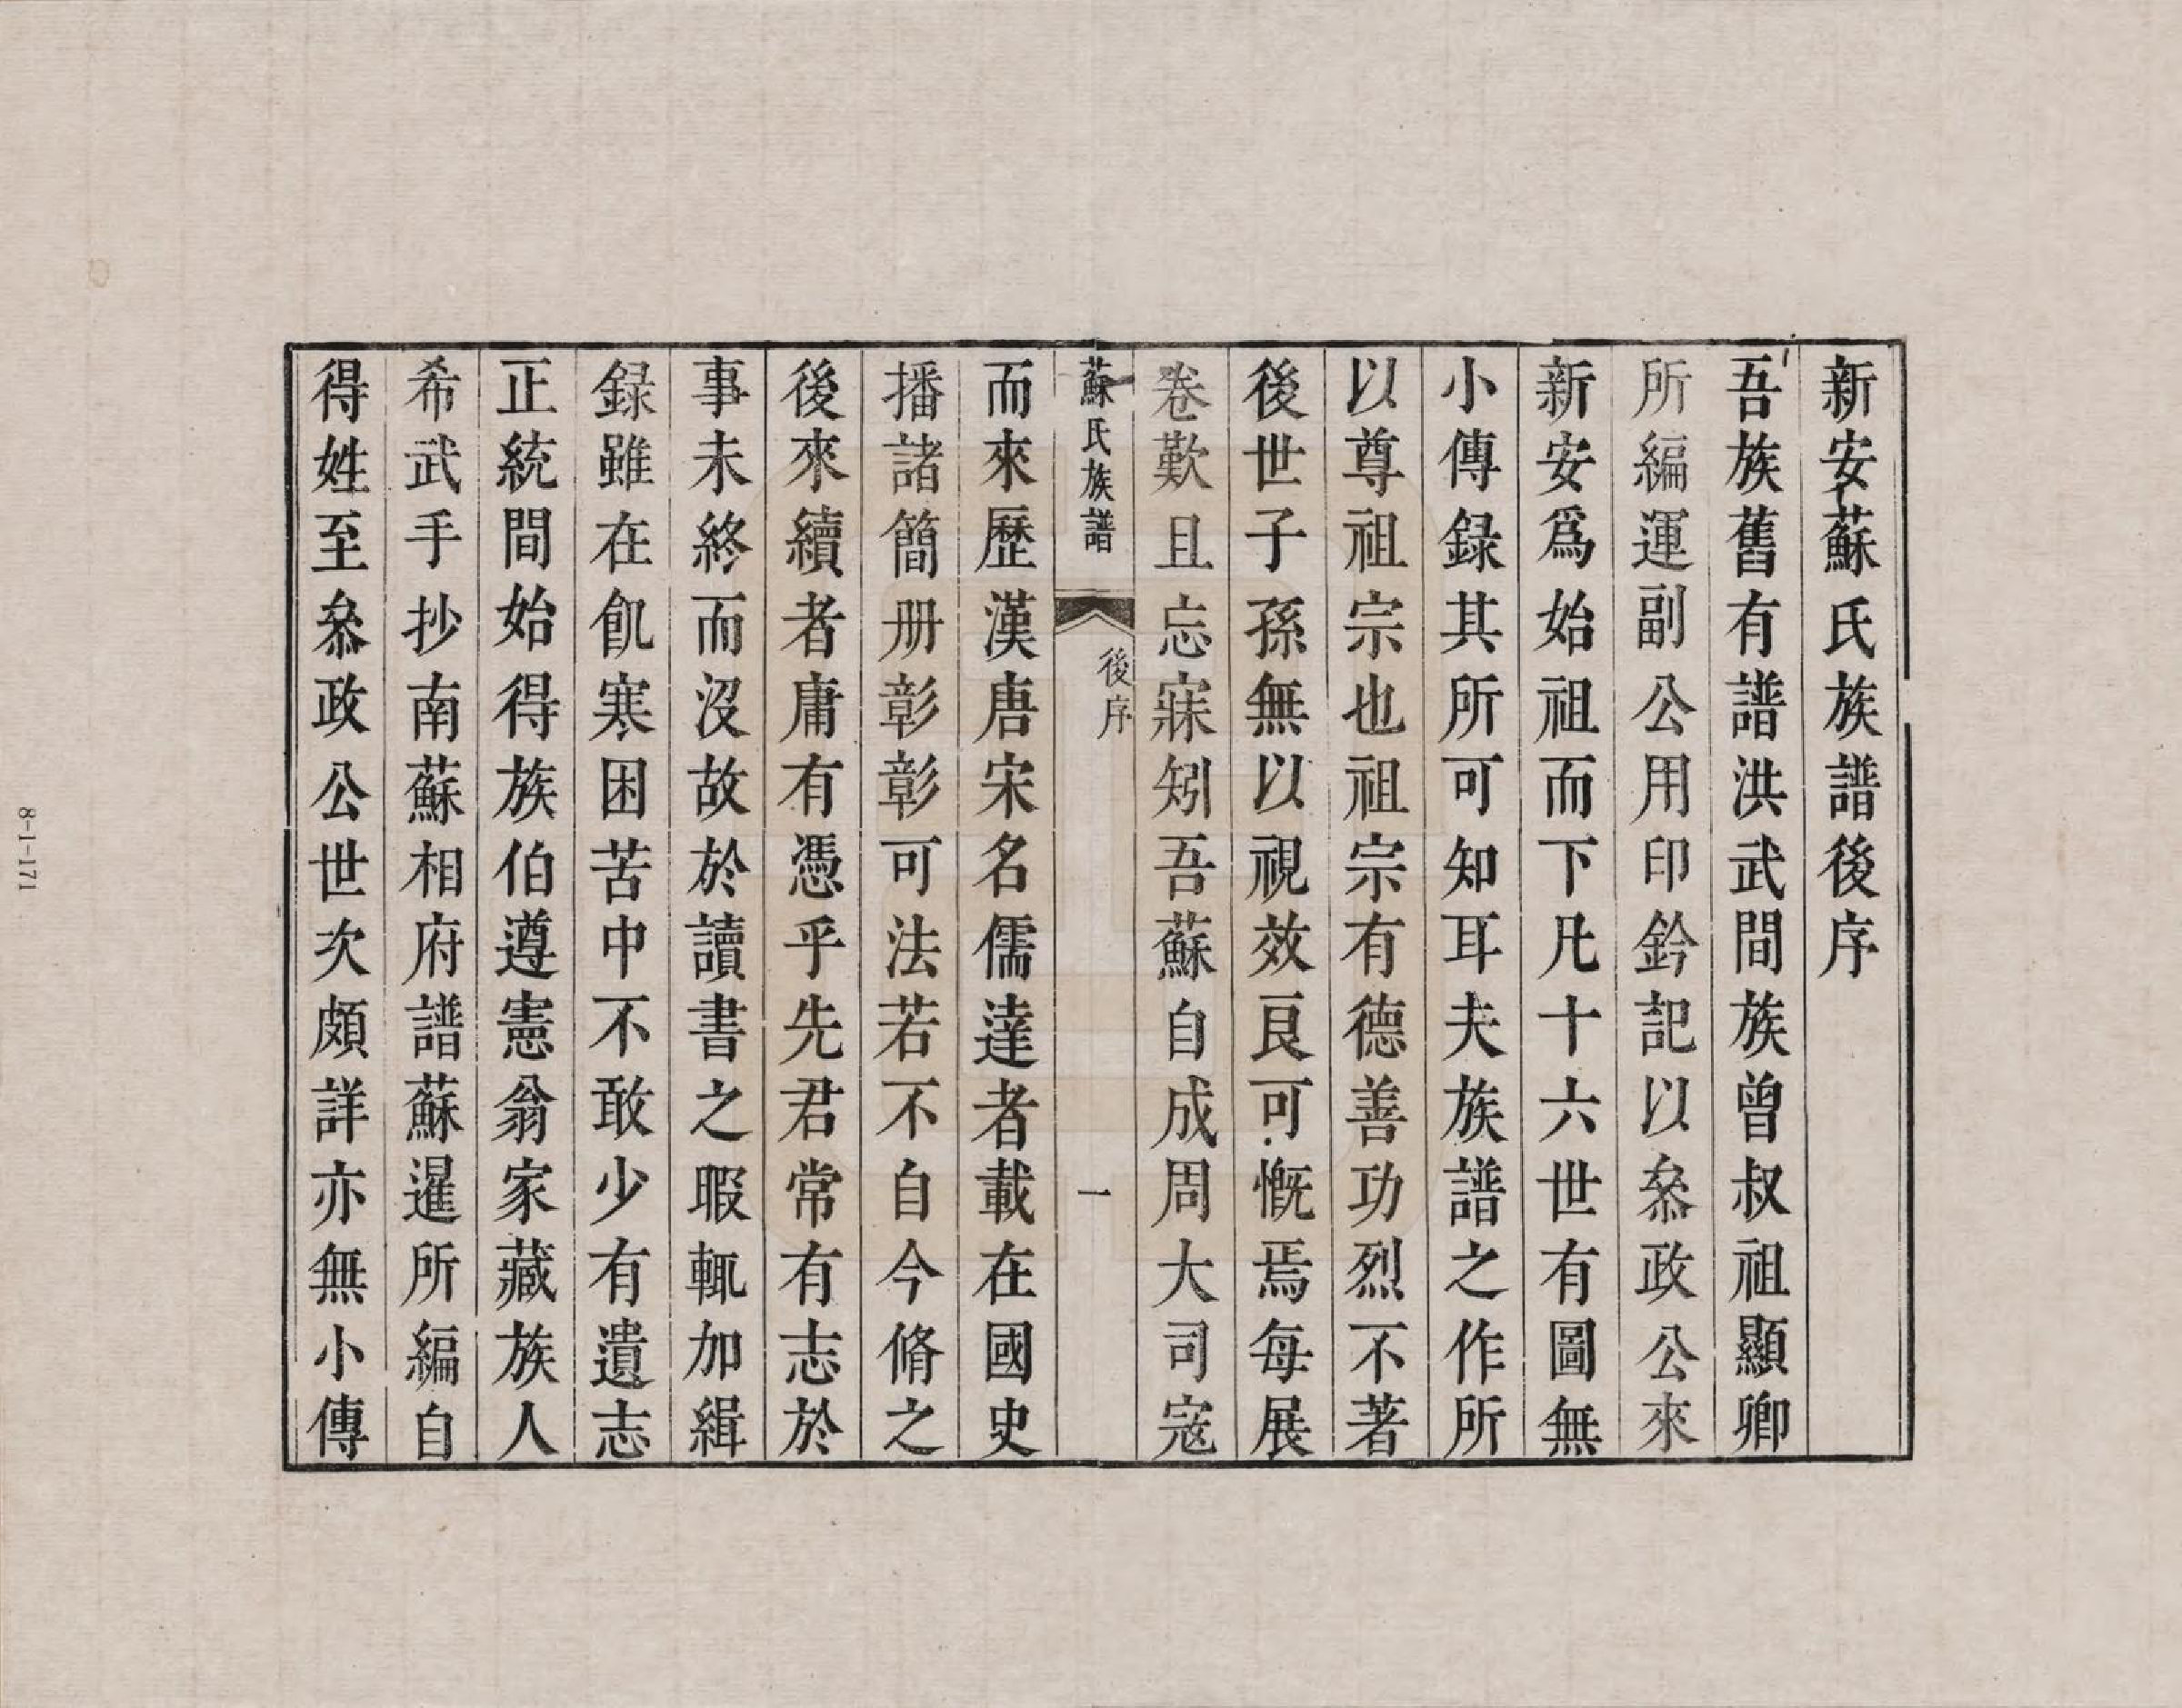 新安蘇氏族譜後序
吾族舊有譜洪武間族曾叔祖顯卿
所編運副公用印鈐記以叅政公來
新安爲始祖而下凡十六世有圖無
小傳録其所可知耳夫族譜之作所
以尊祖宗也祖宗有德善功烈不著
後世子孫無以視效良可慨焉每展
卷歎且忘寐矧吾蘇自成周大司寇
蘇氏族譜
後序
一
而來歷漢唐宋名儒達者載在國史
播諸簡册彰彰可法若不自今脩之
後來續者庸有憑乎先君常有志於
事未終而沒故於讀書之暇輒加緝
録雖在飢寒困苦中不敢少有遺志
正統間始得族伯遵憲翁家藏族人
希武手抄南蘇相府譜蘇暹所編自
得姓至叅政公世次頗詳亦無小傳
8-1-171